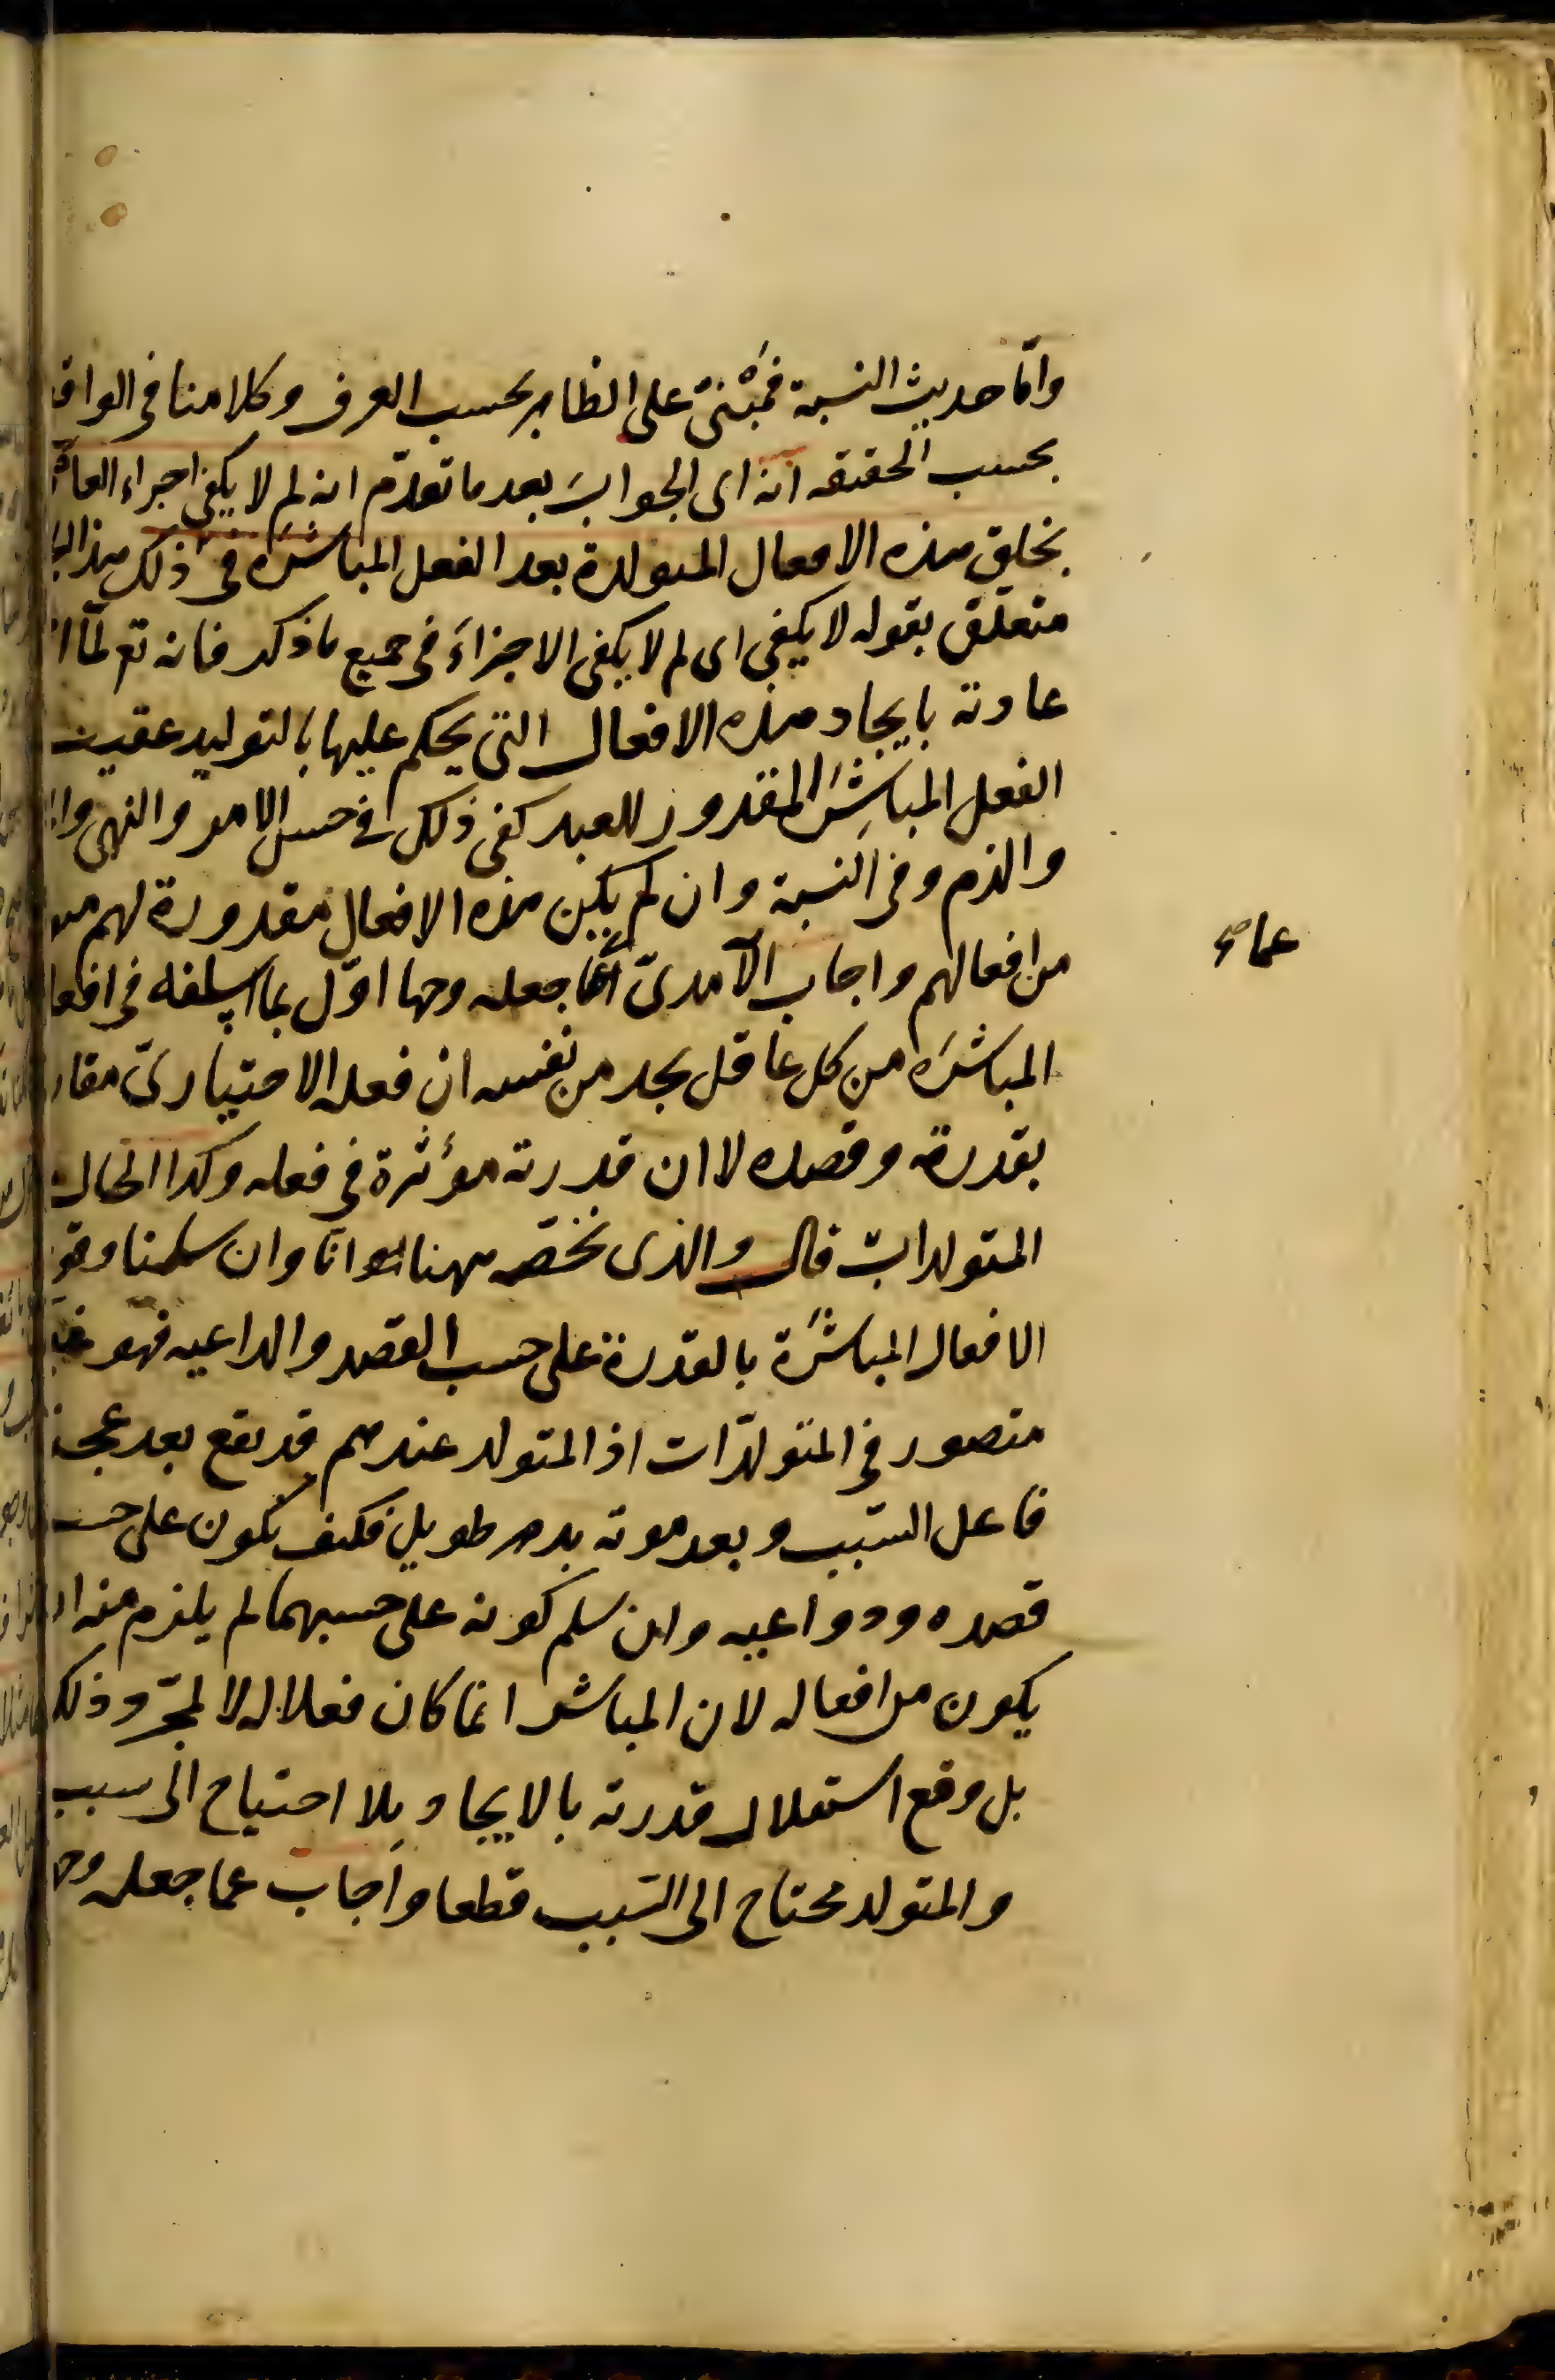 وامّا حديث النسبة فمبْنىّ على الظاهر بحسب العرف وكلامنا فى الواقع
بحسب الحقيقه انه اى الجواب بعد ما تقدّم انه لم لا يكفى اجراء العادة
بخلق هذه الافعال المتولدة بعد الفعل المباشر فى ذلك هذا
متعلّق بقوله لا يكفى اى لم لا يكفى الاجراء فى جميع ما ذكر فانه تع لمّا
عادته بايجاد هذه الافعال التى يحكم عليها بالتوليد عقيب
الفعل المباشر المقدور للعبد كفى ذلك فى حسن الامر والنهى
والذم وفى النسبة وان لم يكن هذه الافعال مقدورة لهم
من افعالهم واجاب الآمدىّ عما جعله وجها اوّل بما اسلفه فى
المباشره من كل عاقل يجد من نفسه ان فعله الاختيارىّ مقارن
بقدرته وقصده لا ان قدرته مؤثرة فى فعله وكذا الحال
المتولدات قال والذى نخصّه ههنا هو انا وان سلمنا وقوع
الافعال المباشرة بالقدرة على حسب القصد والداعيه فهو غير
متصور فى المتولدات اذ المتولد عندهم قد يقع بعد عجز
فاعل السبب وبعد موته بدهر طويل فكيف يكون على حسب
قصده ودواعيه وان سلم كونه على حسبهما لم يلزم منه ان
يكون من افعاله لان المباشر انما كان فعلا له لا لمجرّد ذلك
بل ومع استقلال قدرته بالايجاد بلا احتياج الى سبب
والمتولد محتاج الى السبب قطعا واجاب عما جعله
عما صح